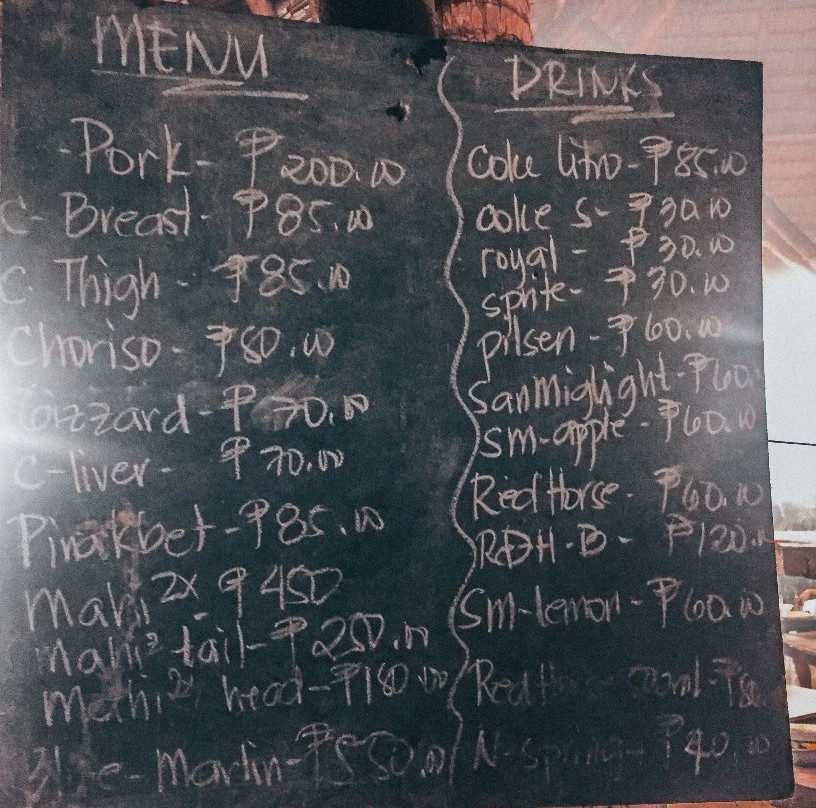 MENU
-Pork- ₱200.00
C- Breast- ₱85.00
C Thigh- ₱85.00
Choriso- ₱80.00
Gizzard- ₱70.00
C-liver- ₱70.00
Pinakbet-₱85.00
Mahi 2x- ₱450
Mahi² tail-₱250.00
Mahi 2x head-₱180.00
Blue-Marlin-₱550.00
DRINKS
Coke litro-₱85.00
coke s- ₱30.00
royal- ₱30.00
sprite- ₱30.00
pilsen- ₱60.00
San Miglight-₱60.
sm-apple-₱60.00
Red Horse- ₱60.00
RDH-B- ₱120.00
Sm-lemon-₱60.00
Red Horse
N-spring-₱40.00